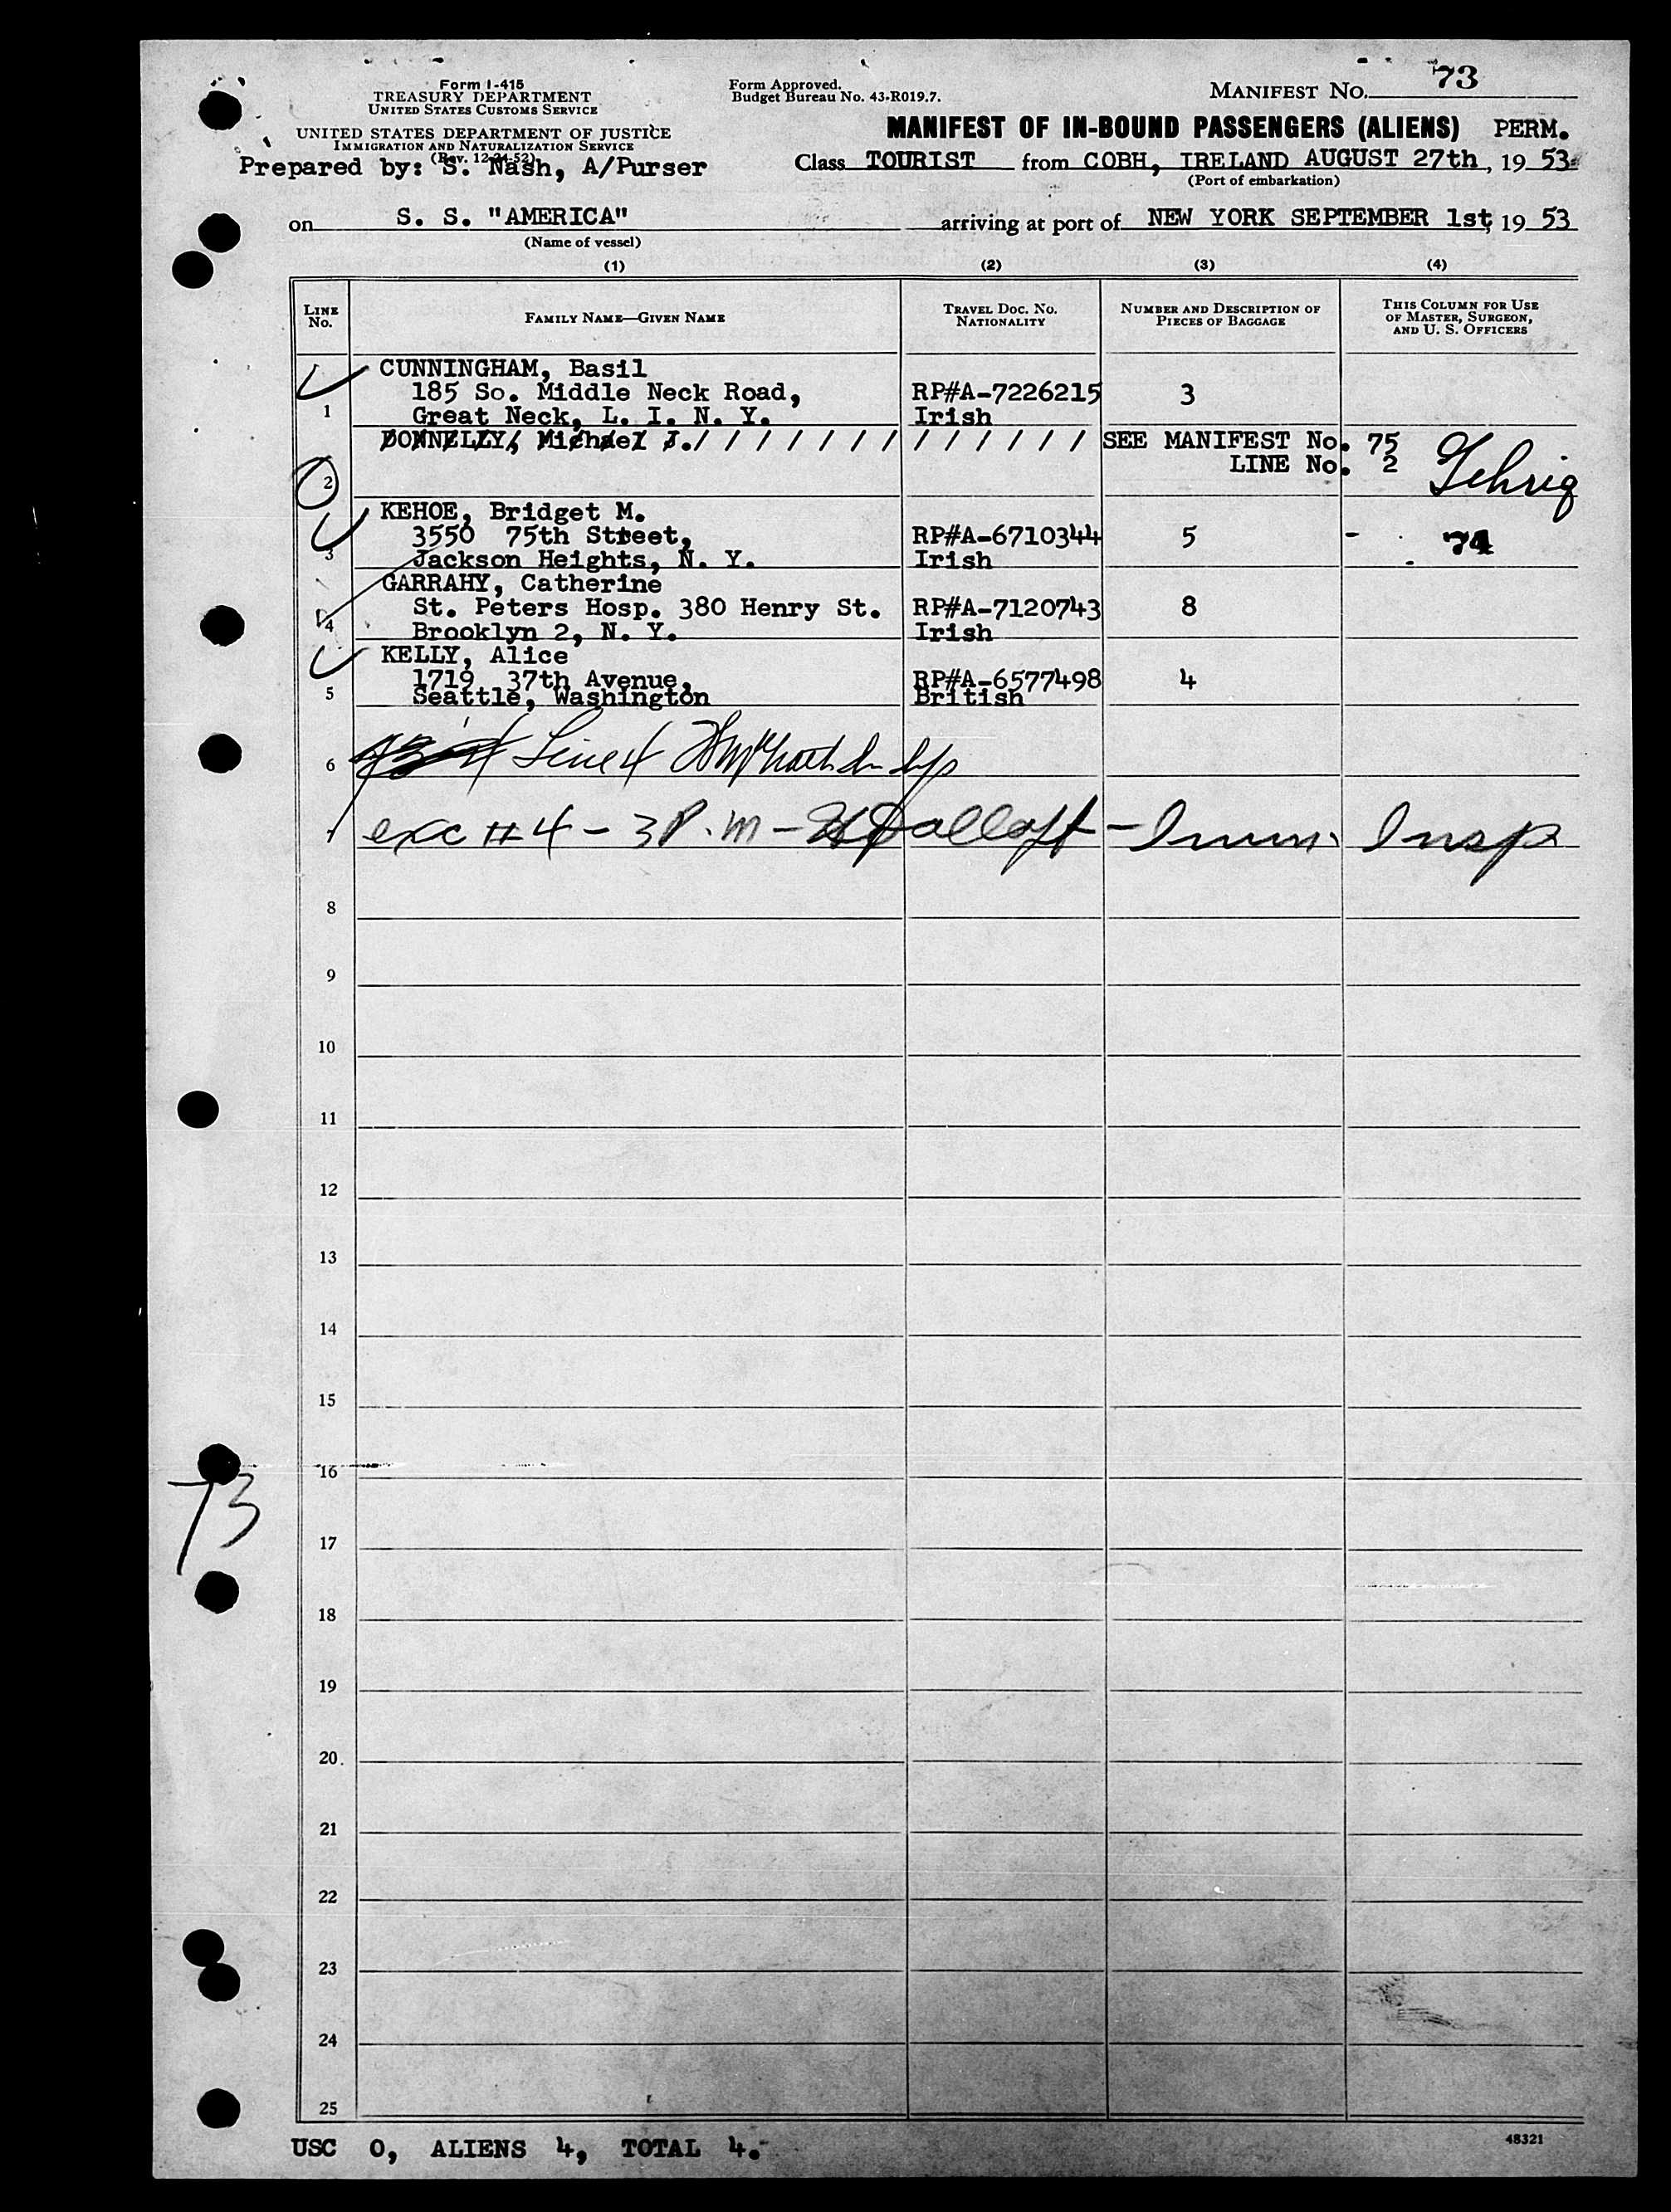 Form I-415
TREASURY DEPARTMENT
UNITED STATES CUSTOMS SERVICE
UNITED STATES DEPARTMENT OF JUSTICE
IMMIGRATION AND NATURALIZATION SERVICE
(Rev. 12-24-52)
Prepared by: S. Nash, A/Purser
Form Approved.
Budget Bureau No. 43-R019.7.
MANIFEST No. 73
MANIFEST OF IN-BOUND PASSENGERS (ALIENS) PERM.
Class TOURIST from COBH, IRELAND AUGUST 27th, 19 53
(Port of embarkation)
on S. S. "AMERICA" arriving at port of NEW YORK SEPTEMBER 1st, 19 53
(Name of vessel)
(1) (2) (3) (4)
LINE No. FAMILY NAME—GIVEN NAME TRAVEL DOC. No. NATIONALITY NUMBER AND DESCRIPTION OF PIECES OF BAGGAGE THIS COLUMN FOR USE OF MASTER, SURGEON, AND U. S. OFFICERS
CUNNINGHAM, Basil
185 So. Middle Neck Road, RP#A-7226215 3
1 Great Neck, L. I. N. Y. Irish
DONNELLY, Michael J. / / / / / / / / / / / / / / SEE MANIFEST No. 75
LINE No. 2 Gehrig
2
KEHOE, Bridget M.
3550 75th Street, RP#A-6710344 5 - 74
3 Jackson Heights, N. Y. Irish
GARRAHY, Catherine
St. Peters Hosp. 380 Henry St. RP#A-7120743 8
4 Brooklyn 2, N. Y. Irish
KELLY, Alice
1719 37th Avenue, RP#A-6577498 4
5 Seattle, Washington British
6 Line 4
7 exc #4 - 3 P.m - Imm. Insp
8
9
10
11
12
13
14
15
16
73
17
18
19
20
21
22
23
24
25
USC 0, ALIENS 4, TOTAL 4.
48321